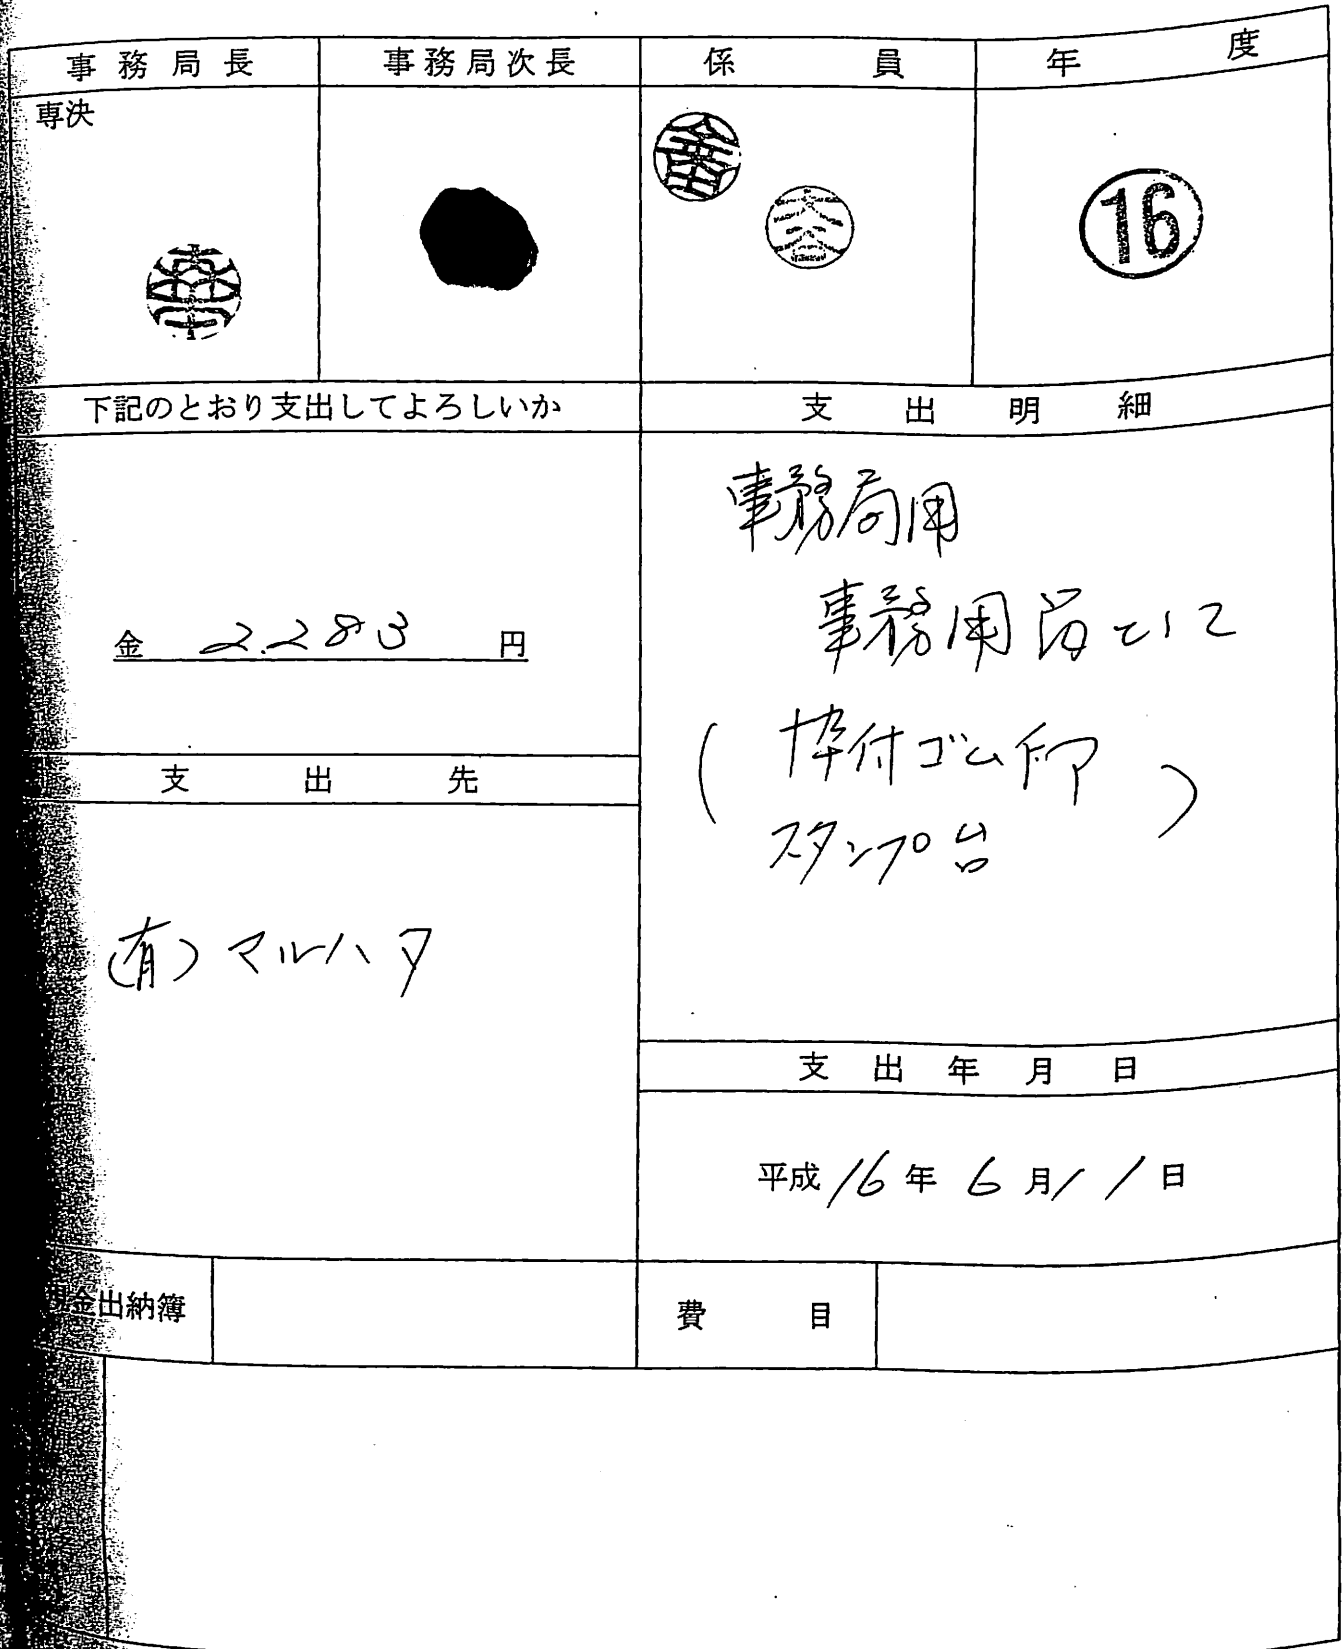 事務局長 事務局次長 係員 年度
専決
16
下記のとおり支出してよろしいか
金 2.283 円
支出先
(有)マルハタ
支出明細
事務局用
事務用品として
(枠付ゴム印
スタンプ台)
支出年月日
平成16年6月11日
金出納簿 費目